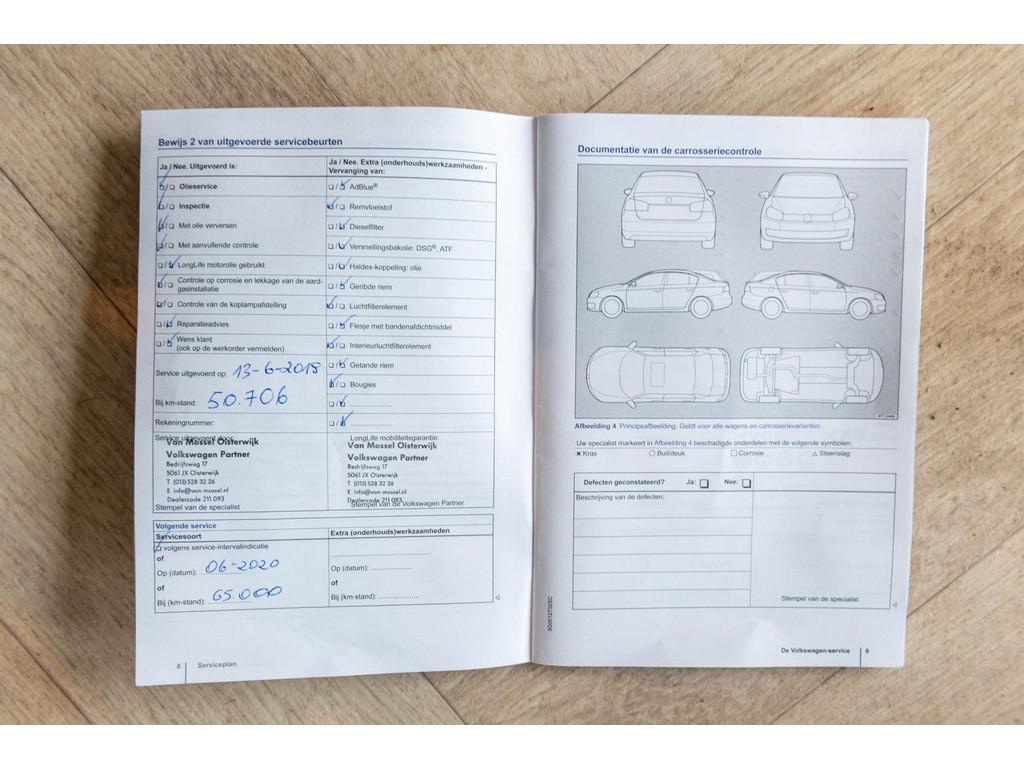 Bewijs 2 van uitgevoerde servicebeurten
Ja / Nee. Uitgevoerd is:
Ja / Nee. Extra (onderhouds)werkzaamheden -
Vervanging van:
Olieservice
AdBlue®
Inspectie
Remvloeistof
Met olie verversen
Dieselfilter
Met aanvullende controle
Versnellingsbakolie: DSG®, ATF
LongLife motorolie gebruikt
Haldex-koppeling: olie
Controle op corrosie en lekkage van de aard-
gasinstallatie
Geribde riem
Controle van de koplampafstelling
Luchtfilterelement
Reparatieadvies
Flesje met bandenafdichtmiddel
Wens klant
(ook op de werkorder vermelden)
Interieurluchtfilterelement
Service uitgevoerd op: 13-6-2018
Getande riem
Bij km-stand: 50.706
Bougies
Rekeningnummer:
Service uitgevoerd door:
LongLife mobiliteitsgarantie:
Van Mossel Oisterwijk
Volkswagen Partner
Bedrijfsweg 17
5061 JX Oisterwijk
T (013) 528 32 26
E info@van-mossel.nl
Dealercode 211 093
Stempel van de specialist
Van Mossel Oisterwijk
Volkswagen Partner
Bedrijfsweg 17
5061 JX Oisterwijk
T (013) 528 32 26
E info@van-mossel.nl
Dealercode 211 093
Stempel van de Volkswagen Partner
Volgende service
Servicesoort
Extra (onderhouds)werkzaamheden
volgens service-intervalindicatie
of
Op (datum): 06-2020
Op (datum):
of
of
Bij (km-stand): 65.000
Bij (km-stand):
8 Serviceplan
Documentatie van de carrosseriecontrole
Afbeelding 4 Principeafbeelding: Geldt voor alle wagens en carrosserievarianten
Uw specialist markeert in Afbeelding 4 beschadigde onderdelen met de volgende symbolen:
× Kras ○ Buil/deuk □ Corrosie △ Steenslag
Defecten geconstateerd? Ja: Nee:
Beschrijving van de defecten:
Stempel van de specialist
3G0012732SC
De Volkswagen-service 9